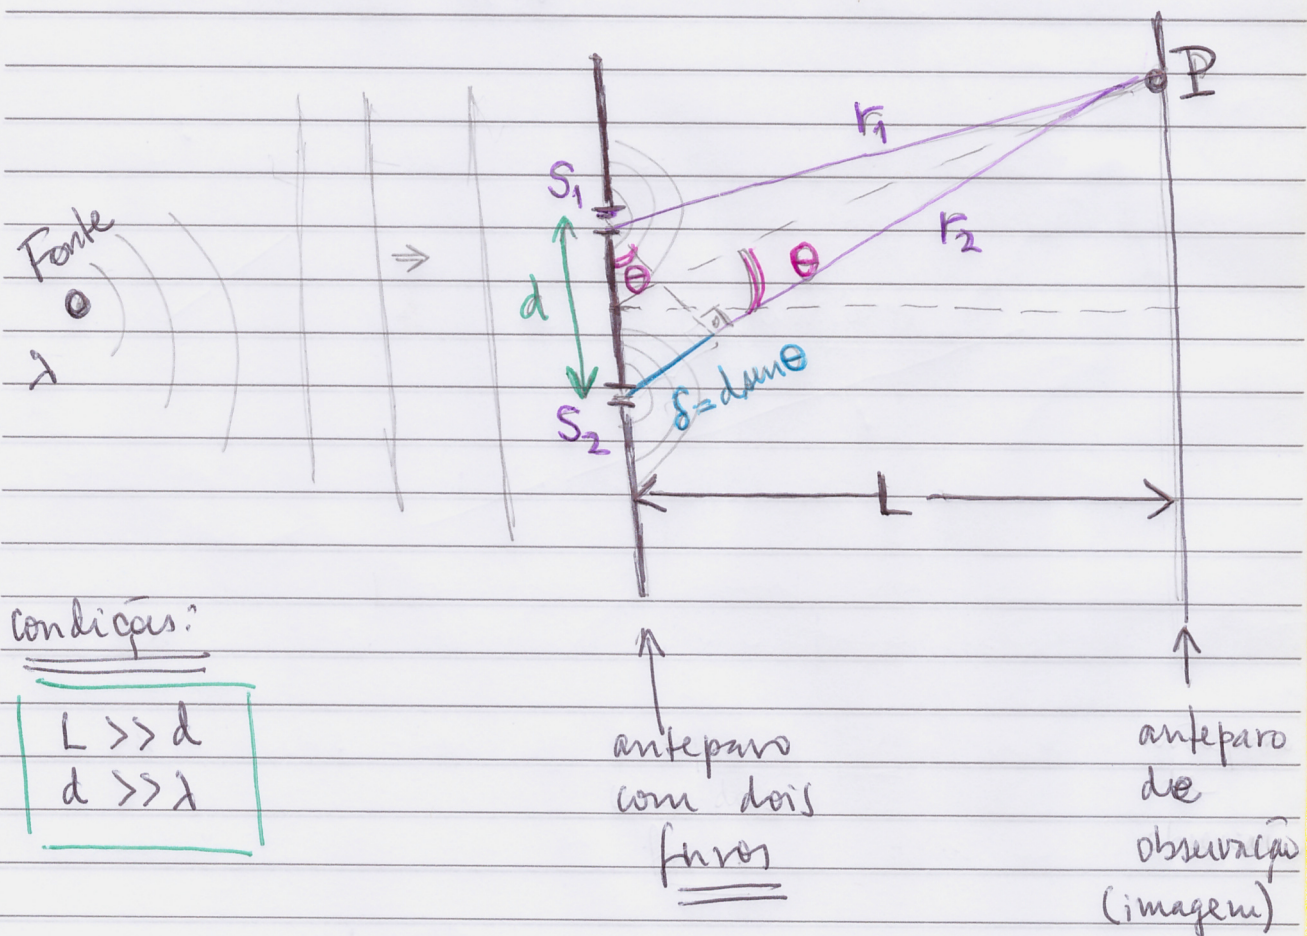 P
r₁
S₁
Fonte
r₂
θ
θ
d
λ
δ = d senθ
S₂
L
condições:
L >> d
d >> λ
anteparo
com dois
furos
anteparo
de
observação
(imagem)